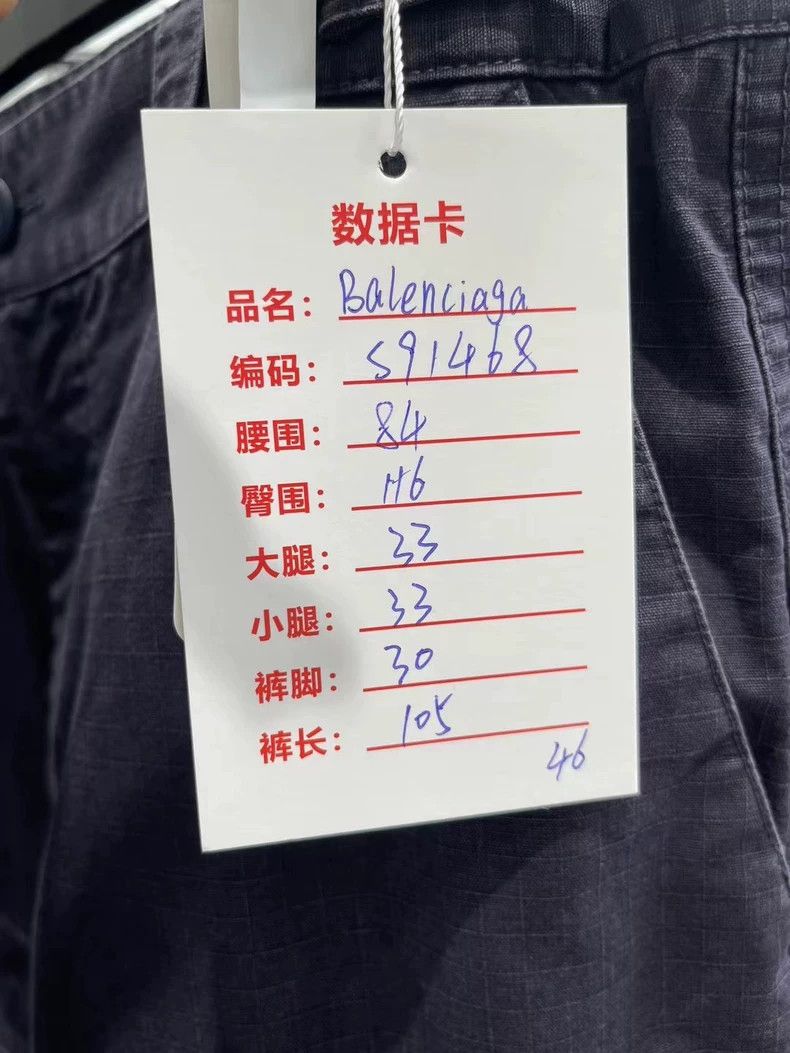 数据卡
品名：Balenciaga
编码：591468
腰围：84
臀围：116
大腿：33
小腿：33
裤脚：30
裤长：105
46